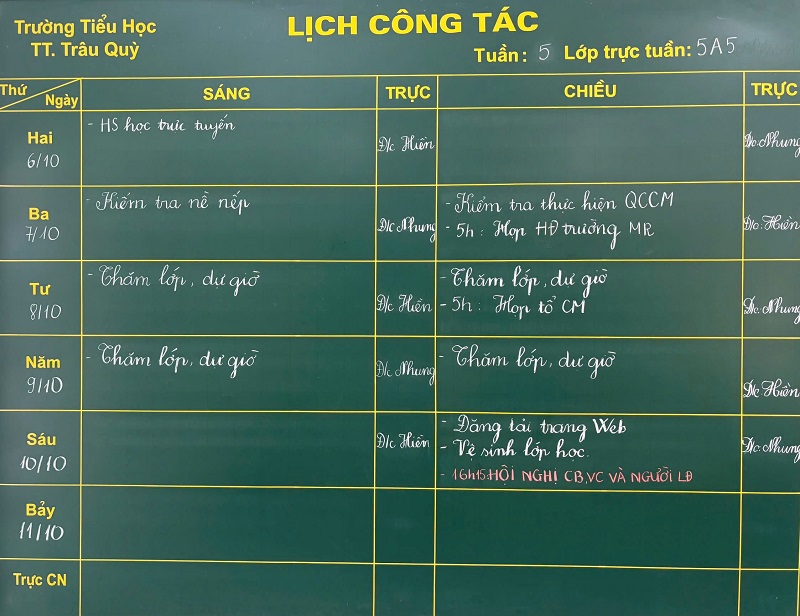 Trường Tiểu Học
TT. Trâu Quỳ
LỊCH CÔNG TÁC
Tuần: 5 Lớp trực tuần: 5A5
Thứ Ngày SÁNG TRỰC CHIỀU TRỰC
Hai
6/10
- HS học trực tuyến
Đ/c Hiền
Đ/c: Nhung
Ba
7/10
- Kiểm tra nề nếp
Đ/c Nhung
- Kiểm tra thực hiện QCCM
- 5h: Họp HĐ trường MR
Đ/c: Hiền
Tư
8/10
- Thăm lớp, dự giờ
Đ/c Hiền
- Thăm lớp, dự giờ
- 5h: Họp tổ CM
Đ/c: Nhung
Năm
9/10
- Thăm lớp, dự giờ
Đ/c Nhung
- Thăm lớp, dự giờ
Đ/c Hiền
Sáu
10/10
Đ/c Hiền
- Đăng tải trang Web
- Vệ sinh lớp học.
- 16h15: HỘI NGHỊ CB, VC VÀ NGƯỜI LĐ
Đ/c: Nhung
Bảy
11/10
Trực CN